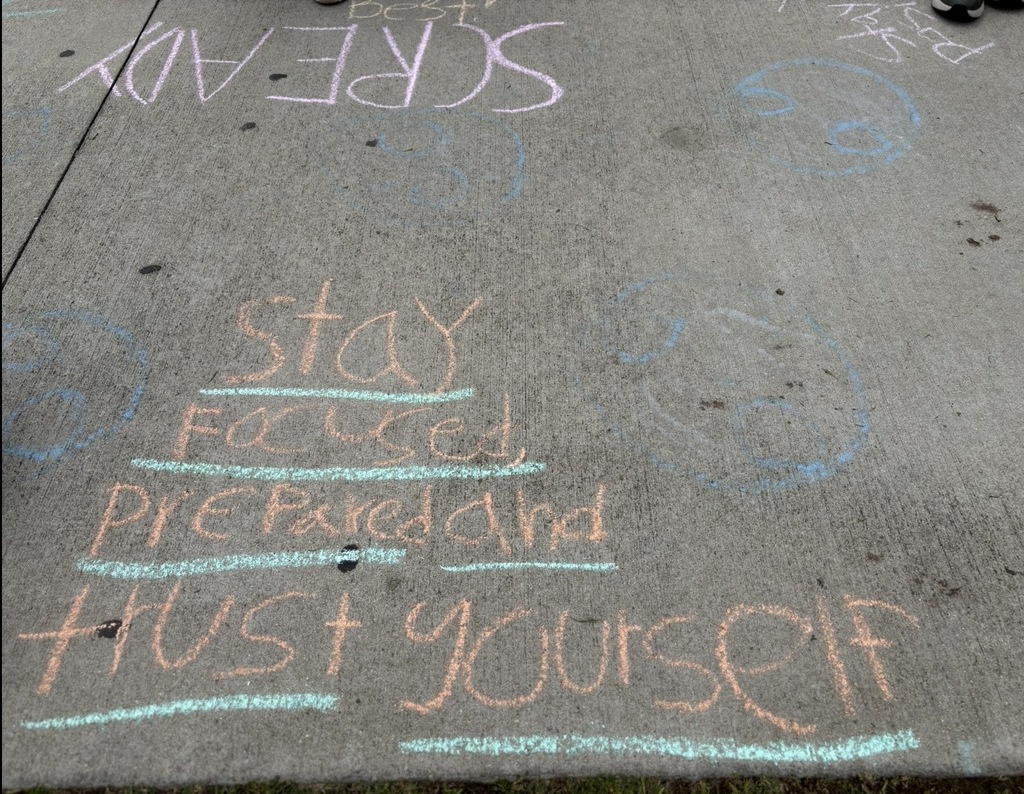 Best
SCREADY
Stay
Focused,
prepared and
trust yourself